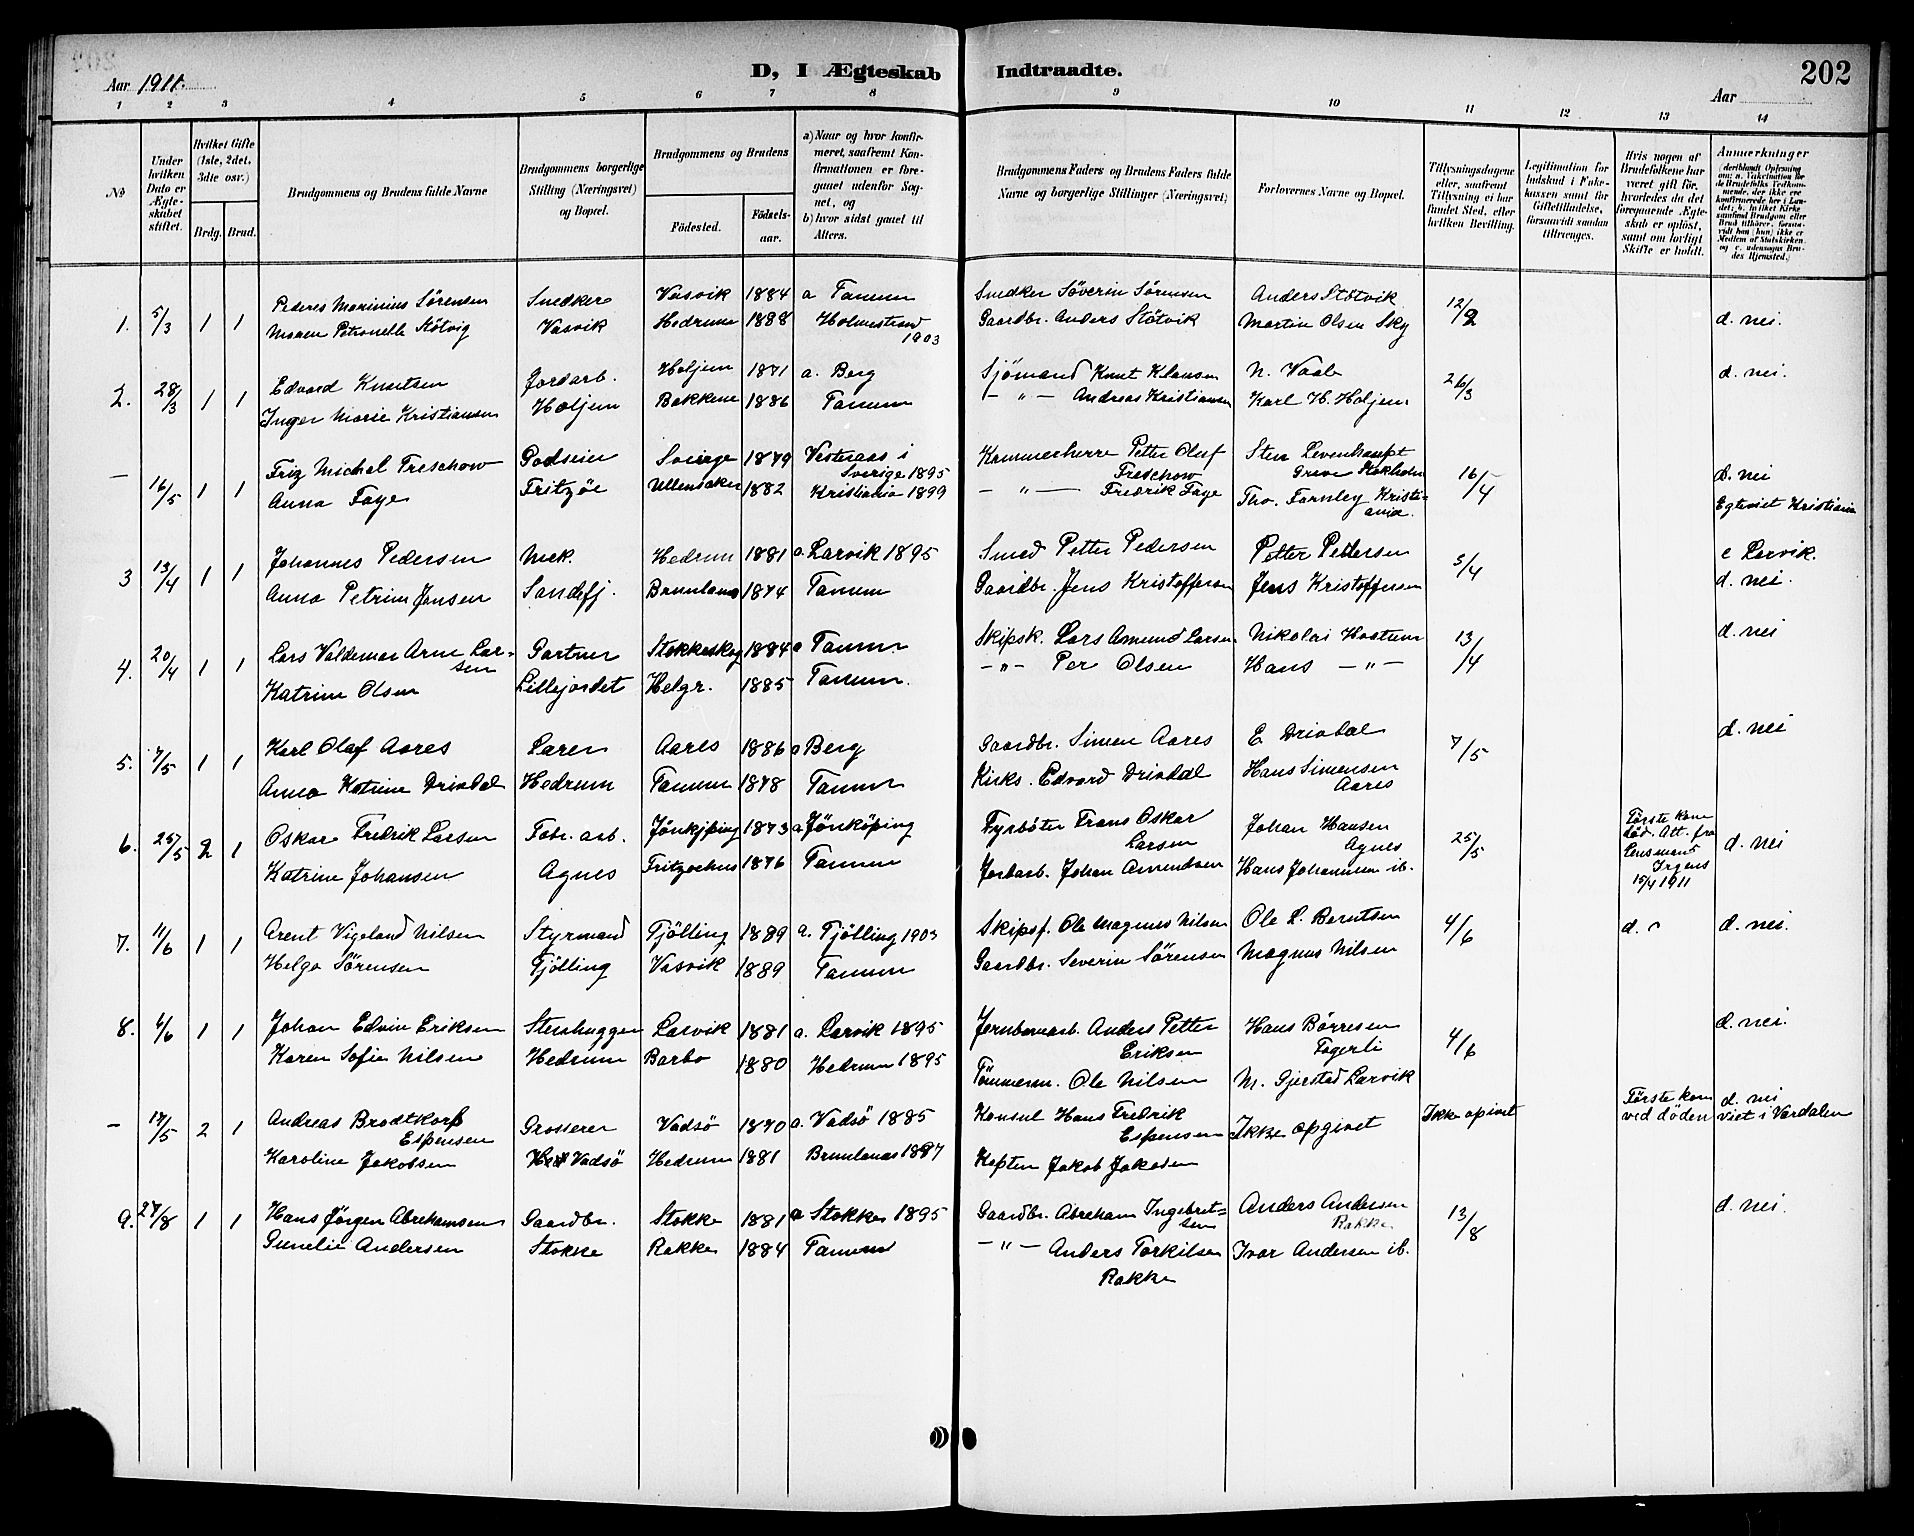 Aar 1911.
D, I Ægteskab Indtraadte.
202
Aar
1 2 3 4 5 6 7 8 9 10 11 12 13 14
No
Under hvilken Dato er Ægteskabet stiftet.
Hvilket Gifte (1ste, 2det, 3die osv.)
Brdg. Brud.
Brudgommens og Brudens fulde Navne
Brudgommens borgerlige Stilling (Næringsvei) og Bopæl.
Brudgommens og Brudens
Fødested.
Fødselsaar.
a) Naar og hvor konfirmeret, saafremt Konfirmationen er foregaaet udenfor Sognet, og
b) hvor sidst gaaet til Alters.
Brudgommens Faders og Brudens Faders fulde Navne og borgerlige Stillinger (Næringsvei)
Forlovernes Navne og Bopæl.
Tillysningsdagene eller, saafremt Tillysning ei har fundet Sted, efter hvilken Bevilling.
Legitimation for Indskud i Enkekassen samt for Giftetilladelse, forsaavidt saadan tiltrænges.
Hvis nogen af Brudefolkene har været gift før, hvorledes da det foregaaende Ægteskab er opløst, samt om lovligt Skifte er holdt.
Anmærkninger
1. 5/3 1 1 Peder Marinius Sørensen Snedker Vasvik 1884 a Tanum Snedker Söverin Sörensen Anders Stötvik 12/2
Maren Petronelle Stötvig Vasvik Hedrum 1888 Holmestrand 1903 Gaardbr. Anders Stötvik Martin Olsen Sky d. nei.
2. 28/3 1 1 Edvard Knutsen Jordarb. Holjem 1871 a. Berg Sjömand Knut Klausen N. Vaale 26/3 d. nei.
Inger Marie Kristiansen Holjem Bakkene 1886 Tanum — " — Andreas Kristiansen Karl H. Holjem
— 16/5 1 1 Friz Michal Treschow Godseier Sverige 1879 Vesteraas i Sverige 1895 Kammerherre Petter Oluf Treschow Sten Levenhaupt Greve 16/4 d. nei
Anna Faye Fritzöe Ullensaker 1882 Kristiania 1899 — " — Fredrik Faye Tho. Farnley Kristiania. Egteviet Kristiania
3 13/4 1 1 Johannes Pedersen Mek. Hedrum 1881 a. Larvik 1895 Smed Petter Pedersen Petter Pettersen 5/4 c Larvik.
Anna Petrine Jensen Sandefj. Brunlanes 1874 Tanum Gaardbr. Jens Kristoffersen Jens Kristoffersen d. nei.
4. 20/4 1 1 Lars Valdemar Arne Larsen Gartner Stokkeskog 1884 a Tanum Skipsk. Lars Amund Larsen Nikolai Haatum 13/4 d. nei
Katrine Olsen Lillejordet Helgr. 1885 Tanum. — " — Per Olsen Hans — " —
5. 7/5 1 1 Karl Olaf Aares Farer Aares 1886 a Berg Gaardbr. Simen Aares E. Drivdal 7/5 d. nei
Anna Katrine Drivdal Hedrum Tanum 1878 Tanum Kirks. Edvard Drivdal Hans Simensen Aares
6. 25/5 2 1 Oskar Fredrik Larsen Fabr. arb. Jönkjping 1873 a Jönköping Fyrböter Frans Oskar Larsen Johan Hansen Agnes 25/5 Første kone död. Att. fra Lensmand Irgens 15/4 1911 d. nei
Katrine Johansen Agnes Fritzoehus 1876 Tanum Jordarb. Johan Amundsen Hans Johannsen ib.
7. 11/6 1 1 Arent Vigeland Nilsen Styrmand Tjölling 1889 a. Tjölling 1903 Skipsf. Ole Magnus Nilsen Ole L. Berntsen 4/6 d. nei.
Helga Sørensen Tjölling Vasvik 1889 Tanum Gaardbr. Severin Sørensen Magnus Nilsen
8. 4/6 1 1 Johan Edvin Eriksen Stenhugger Larvik 1881 a. Larvik 1895 Jernbanearb. Anders Petter Eriksen Hans Børresen Fagerli 4/6 d. nei.
Karen Sofie Nilsen Hedrum Barbo 1880 Hedrum 1895 Tömmerm. Ole Nilsen M. Gjerstad Larvik
— 17/5 2 1 Andreas Brodtkorb Espensen Grosserer Vadsö 1870 a. Vadsö 1885 Konsul Hans Fredrik Espensen Ikke opgivet Ikke opivet Første kone ved döden d. nei viet i Værdalen
Karoline Jakobsen Vadsö Hedrum 1881 Brunlanes 1897 Kaptein Jakob Jakobsen
9. 27/8 1 1 Hans Jörgen Abrahamsen Gaardbr. Stokke 1881 a Stokke 1895 Gaardbr. Abraham Ingebretsen Anders Andersen Rakke 13/8 d. nei.
Gunelie Andersen Stokke Rakke 1884 Tanum — " — Anders Torkilsen Rakke Ivar Andersen ib.